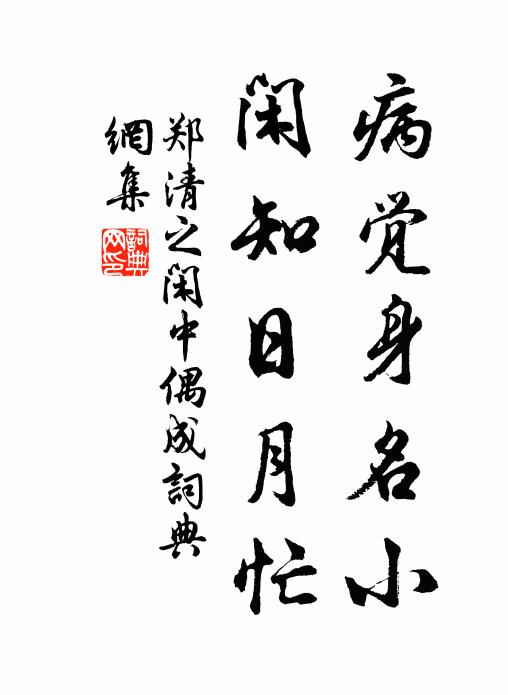 病觉身名小
闲知日月忙
郑清之闲中偶成詞典
網集
詞典
网印